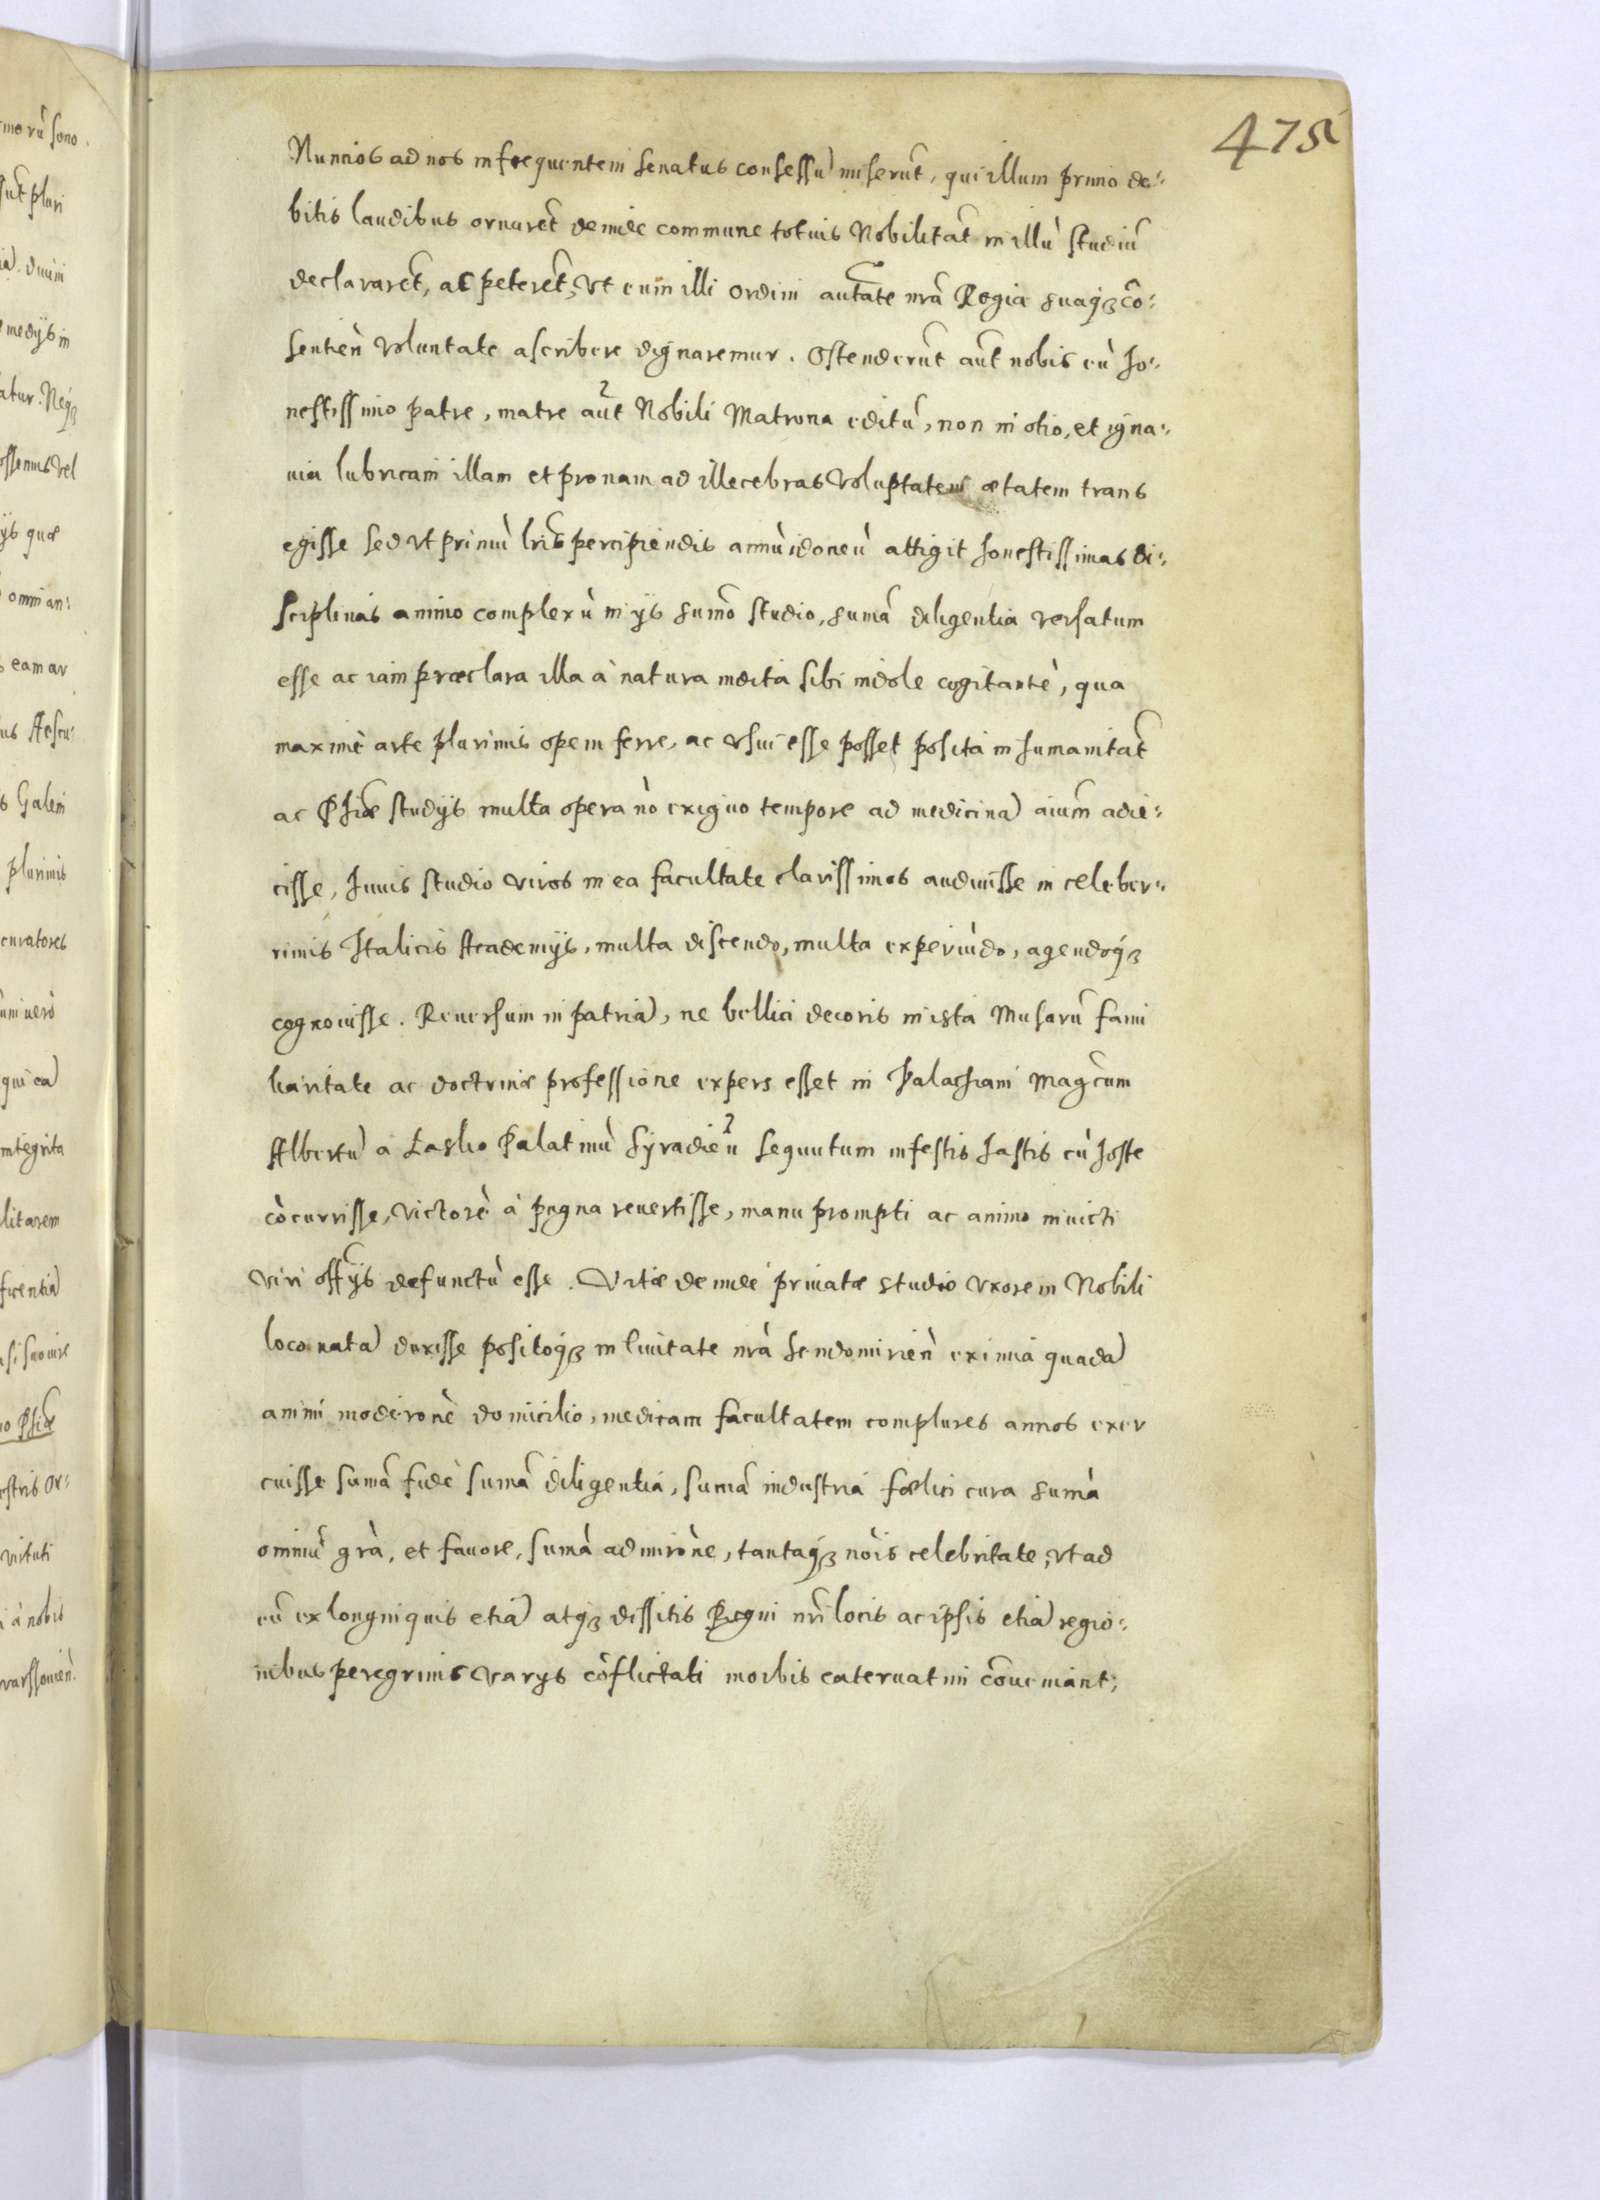 475
Nuncios ad nos in frequentem senatus consessũ miserũt, qui illum primo de:
bitis laudibus ornarẽt deinde commune totius Nobilitat̃ in illũ studiũ
declararẽt, ac peterẽt, Vt eum illi ordini autt̃ate nrã Regia suaqꝫ cõ:
sentieñ voluntate ascribere dignaremur. Ostenderũt aũt nobis eũ ho:
nestissimo patre, matre aũt Nobili Matrona editũ, non in otio, et igna:
uia lubricam illam et pronam ad illecebras Voluptatem ætatem trans
egisse sed vt primũ lrĩs percipiendis annũ idoneũ attigit honestissimas di:
sciplinas animo complexũ in ijs sum̃o studio, sum̃a diligentia versatum
esse ac iam præclara illa à natura indita sibi indole cogitantẽ, qua
maximè arte plurimis opem ferre, ac vsui esse posset posita in humanitat̃
ac Phiæ studijs multa opera nõ exiguo tempore ad medicinã aium̃ adie:
cisse, huius studio viros in ea facultate clarissimos audiuisse in celeber:
rimis Italicis Academijs, multa discendo, multa experiũdo, agendoqꝫ
cognouisse. Reuersum in patriã, ne bellici decoris in ista Musarũ fami
liaritate ac doctrinæ professione expers esset in Valachiam Mag̃cum
Albertũ a Łasko Palatinũ Syradieñ sequutum infestis hastis cũ hoste
cõcurrisse, victorẽ à pugna reuertisse, manu prompti ac animo inuicti
viri off̃ijs defunctũ esse. Vitæ deinde priuatæ studio vxorem Nobili
loco natã duxisse positoqꝫ in Ciuitate nrã Sendomirieñ eximia quadã
animi moderonẽ domicilio, medicam facultatem complures annos exer
cuisse sum̃a fidẽ sum̃a diligentia, sum̃a industria fælici cura sum̃a
omniũ grã, et fauore, sum̃a admirõne, tantaqꝫ nõis celebritate, vt ad
eũ ex longinquis etiã atqꝫ dissitis Regni nrĩ locis ac ipsis etiã regio:
nibus peregrinis varijs cõflictati morbis cateruatim cõueniant;